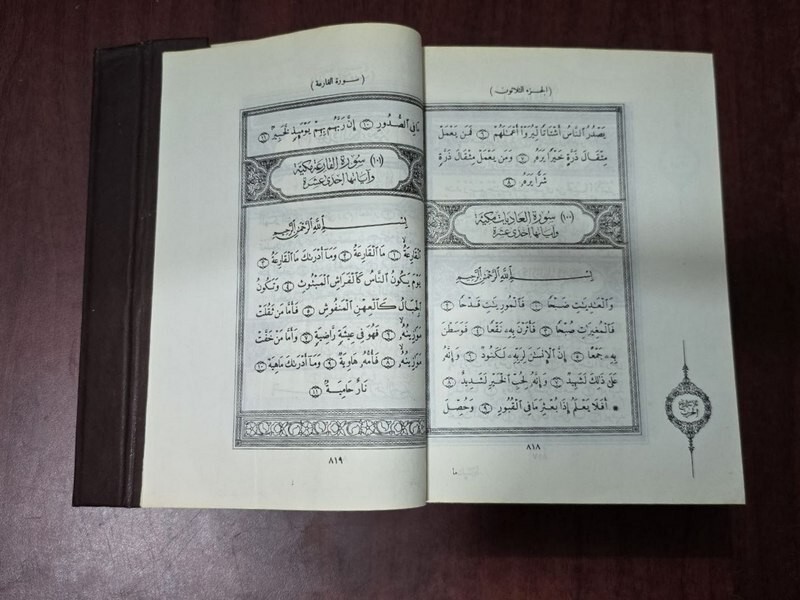 (الجزء الثلاثون)
يَصْدُرُ ٱلنَّاسُ أَشْتَاتًا لِّيُرَوْا۟ أَعْمَٰلَهُمْ ٦ فَمَن يَعْمَلْ
مِثْقَالَ ذَرَّةٍ خَيْرًا يَرَهُۥ ٧ وَمَن يَعْمَلْ مِثْقَالَ ذَرَّةٍ
شَرًّا يَرَهُۥ ٨
(١٠٠) سورة العاديات مكية
وآياتها إحدى عشرة
بِسْمِ ٱللَّهِ ٱلرَّحْمَٰنِ ٱلرَّحِيمِ
وَٱلْعَٰدِيَٰتِ ضَبْحًا ١ فَٱلْمُورِيَٰتِ قَدْحًا ٢
فَٱلْمُغِيرَٰتِ صُبْحًا ٣ فَأَثَرْنَ بِهِۦ نَقْعًا ٤ فَوَسَطْنَ
بِهِۦ جَمْعًا ٥ إِنَّ ٱلْإِنسَٰنَ لِرَبِّهِۦ لَكَنُودٌ ٦ وَإِنَّهُۥ
عَلَىٰ ذَٰلِكَ لَشَهِيدٌ ٧ وَإِنَّهُۥ لِحُبِّ ٱلْخَيْرِ لَشَدِيدٌ ٨
* أَفَلَا يَعْلَمُ إِذَا بُعْثِرَ مَا فِى ٱلْقُبُورِ ٩ وَحُصِّلَ
٨١٨
ما
(سورة القارعة)
مَا فِى ٱلصُّدُورِ ١٠ إِنَّ رَبَّهُم بِهِمْ يَوْمَئِذٍ لَّخَبِيرٌ ١١
(١٠١) سورة القارعة مكية
وآياتها إحدى عشرة
بِسْمِ ٱللَّهِ ٱلرَّحْمَٰنِ ٱلرَّحِيمِ
ٱلْقَارِعَةُ ١ مَا ٱلْقَارِعَةُ ٢ وَمَآ أَدْرَىٰكَ مَا ٱلْقَارِعَةُ ٣
يَوْمَ يَكُونُ ٱلنَّاسُ كَٱلْفَرَاشِ ٱلْمَبْثُوثِ ٤ وَتَكُونُ
ٱلْجِبَالُ كَٱلْعِهْنِ ٱلْمَنفُوشِ ٥ فَأَمَّا مَن ثَقُلَتْ
مَوَٰزِينُهُۥ ٦ فَهُوَ فِى عِيشَةٍ رَّاضِيَةٍ ٧ وَأَمَّا مَنْ خَفَّتْ
مَوَٰزِينُهُۥ ٨ فَأُمُّهُۥ هَاوِيَةٌ ٩ وَمَآ أَدْرَىٰكَ مَا هِيَهْ ١٠
نَارٌ حَامِيَةٌ ١١
٨١٩